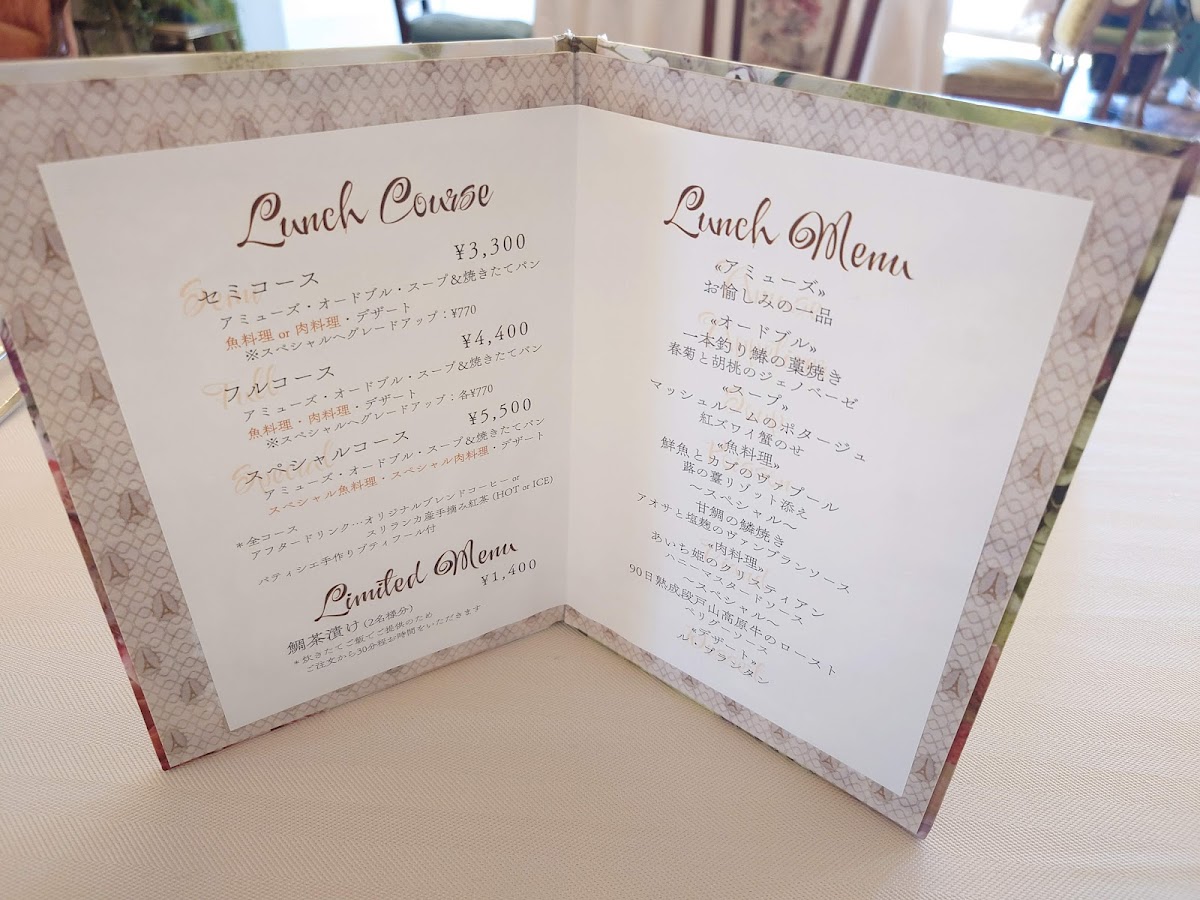 Lunch Course
¥3,300
セミコース
アミューズ・オードブル・スープ＆焼きたてパン
魚料理 or 肉料理・デザート
※スペシャルへグレードアップ：¥770
¥4,400
フルコース
アミューズ・オードブル・スープ＆焼きたてパン
魚料理・肉料理・デザート
※スペシャルへグレードアップ：各¥770
¥5,500
スペシャルコース
アミューズ・オードブル・スープ＆焼きたてパン
スペシャル魚料理・スペシャル肉料理・デザート
＊全コース
アフタードリンク…オリジナルブレンドコーヒー or
スリランカ産手摘み紅茶 (HOT or ICE)
パティシエ手作りプティフール付
Limited Menu
¥1,400
鯛茶漬け (2名様分)
＊炊きたてご飯でご提供のため
ご注文から30分程お時間をいただきます
Lunch Menu
«アミューズ»
お愉しみの一品
«オードブル»
一本釣り鰆の藁焼き
春菊と胡桃のジェノベーゼ
«スープ»
マッシュルームのポタージュ
紅ズワイ蟹のせ
«魚料理»
鮮魚とカブのヴァプール
蕗の薹リゾット添え
～スペシャル～
甘鯛の鱗焼き
アオサと塩麹のヴァンブランソース
«肉料理»
あいち姫のクリスティアン
ハニーマスタードソース
～スペシャル～
90日熟成段戸山高原牛のロースト
ペリグーソース
«デザート»
ル・プランタン